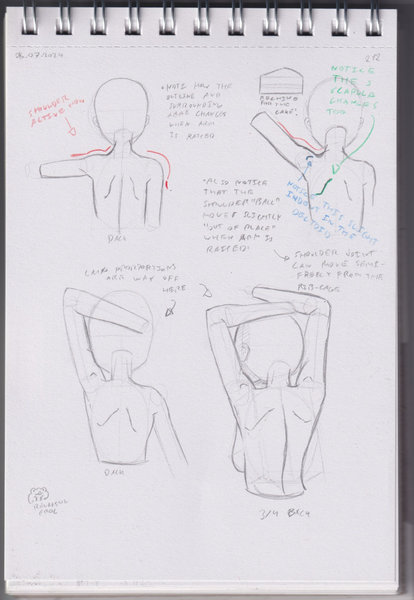 06.07.2024
212
SHOULDER
ACTIVE
• NOTE HOW THE
OUTLINE AND
SURROUNDING
AREA CHANGES
WHEN ARM
IS RAISED
FOR THE
CAKE!
NOTICE
THE
SCAPULA
CHANGES
TOO
NOTICE THIS SLIGHT
INDENT IN THE
DELTOID
• ALSO NOTICE
THAT THE
SHOULDER "BALL"
MOVES SLIGHTLY
"OUT OF PLACE"
WHEN ARM IS
RAISED!
BACK
SHOULDER JOINT
CAN MOVE SEMI-
FREELY FROM THE
RIB-CAGE
LMAO PROPORTIONS
ARE WAY OFF
HERE
BACK
3/4 BACK
FROG